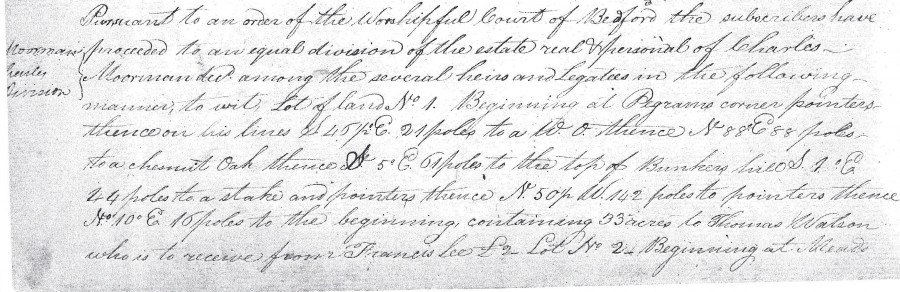 Pursuant to an order of the Worshipful Court of Bedford the subscribers have
proceeded to an equal division of the estate real & personal of Charles
Moorman decd. among the several heirs and Legatees in the following
manner, to wit, Lot of land No. 1. Beginning at Pegrams corner pointers
thence on his lines 46½ E. 21 poles to a W. O. thence N 88 E 88 poles
to a chesnut Oak thence 5° E. 61 poles to the top of Bunkers hill S. 1° E
44 poles to a stake and pointers thence N. 50½ W. 142 poles to pointers thence
No. 10° E. 16 poles to the beginning, containing 33 acres to Thomas Watson
who is to receive from Francis Lee £2 Lot No 2 Beginning at Meads
Moorman
Charles
Division